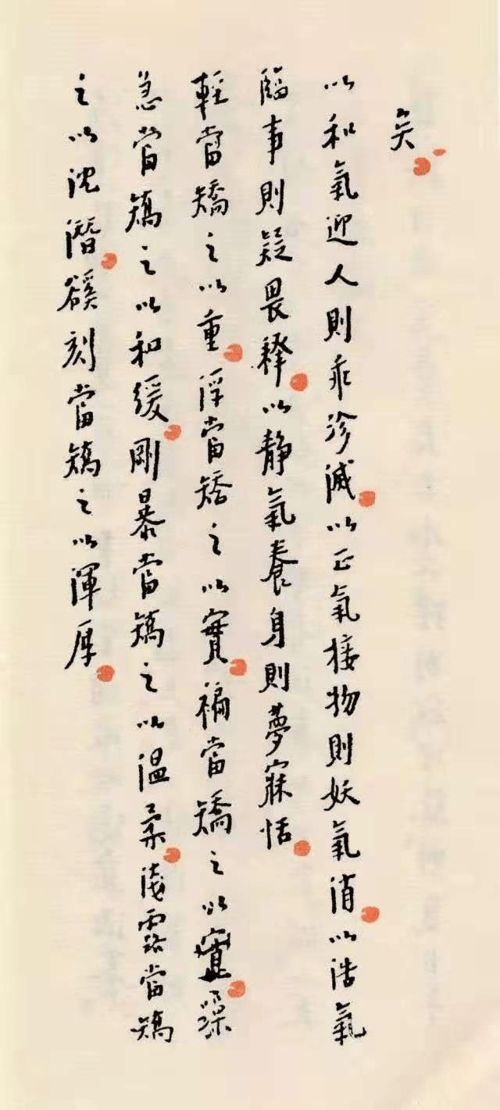 矣
以和氣迎人則乖沴滅以正氣接物則妖氣消以浩氣
臨事則疑畏釋以静氣養身則夢寐恬
輕當矯之以重浮當矯之以實褊當矯之以寬躁
急當矯之以和緩剛暴當矯之以溫柔淺露當矯
之以沈潛谿刻當矯之以渾厚